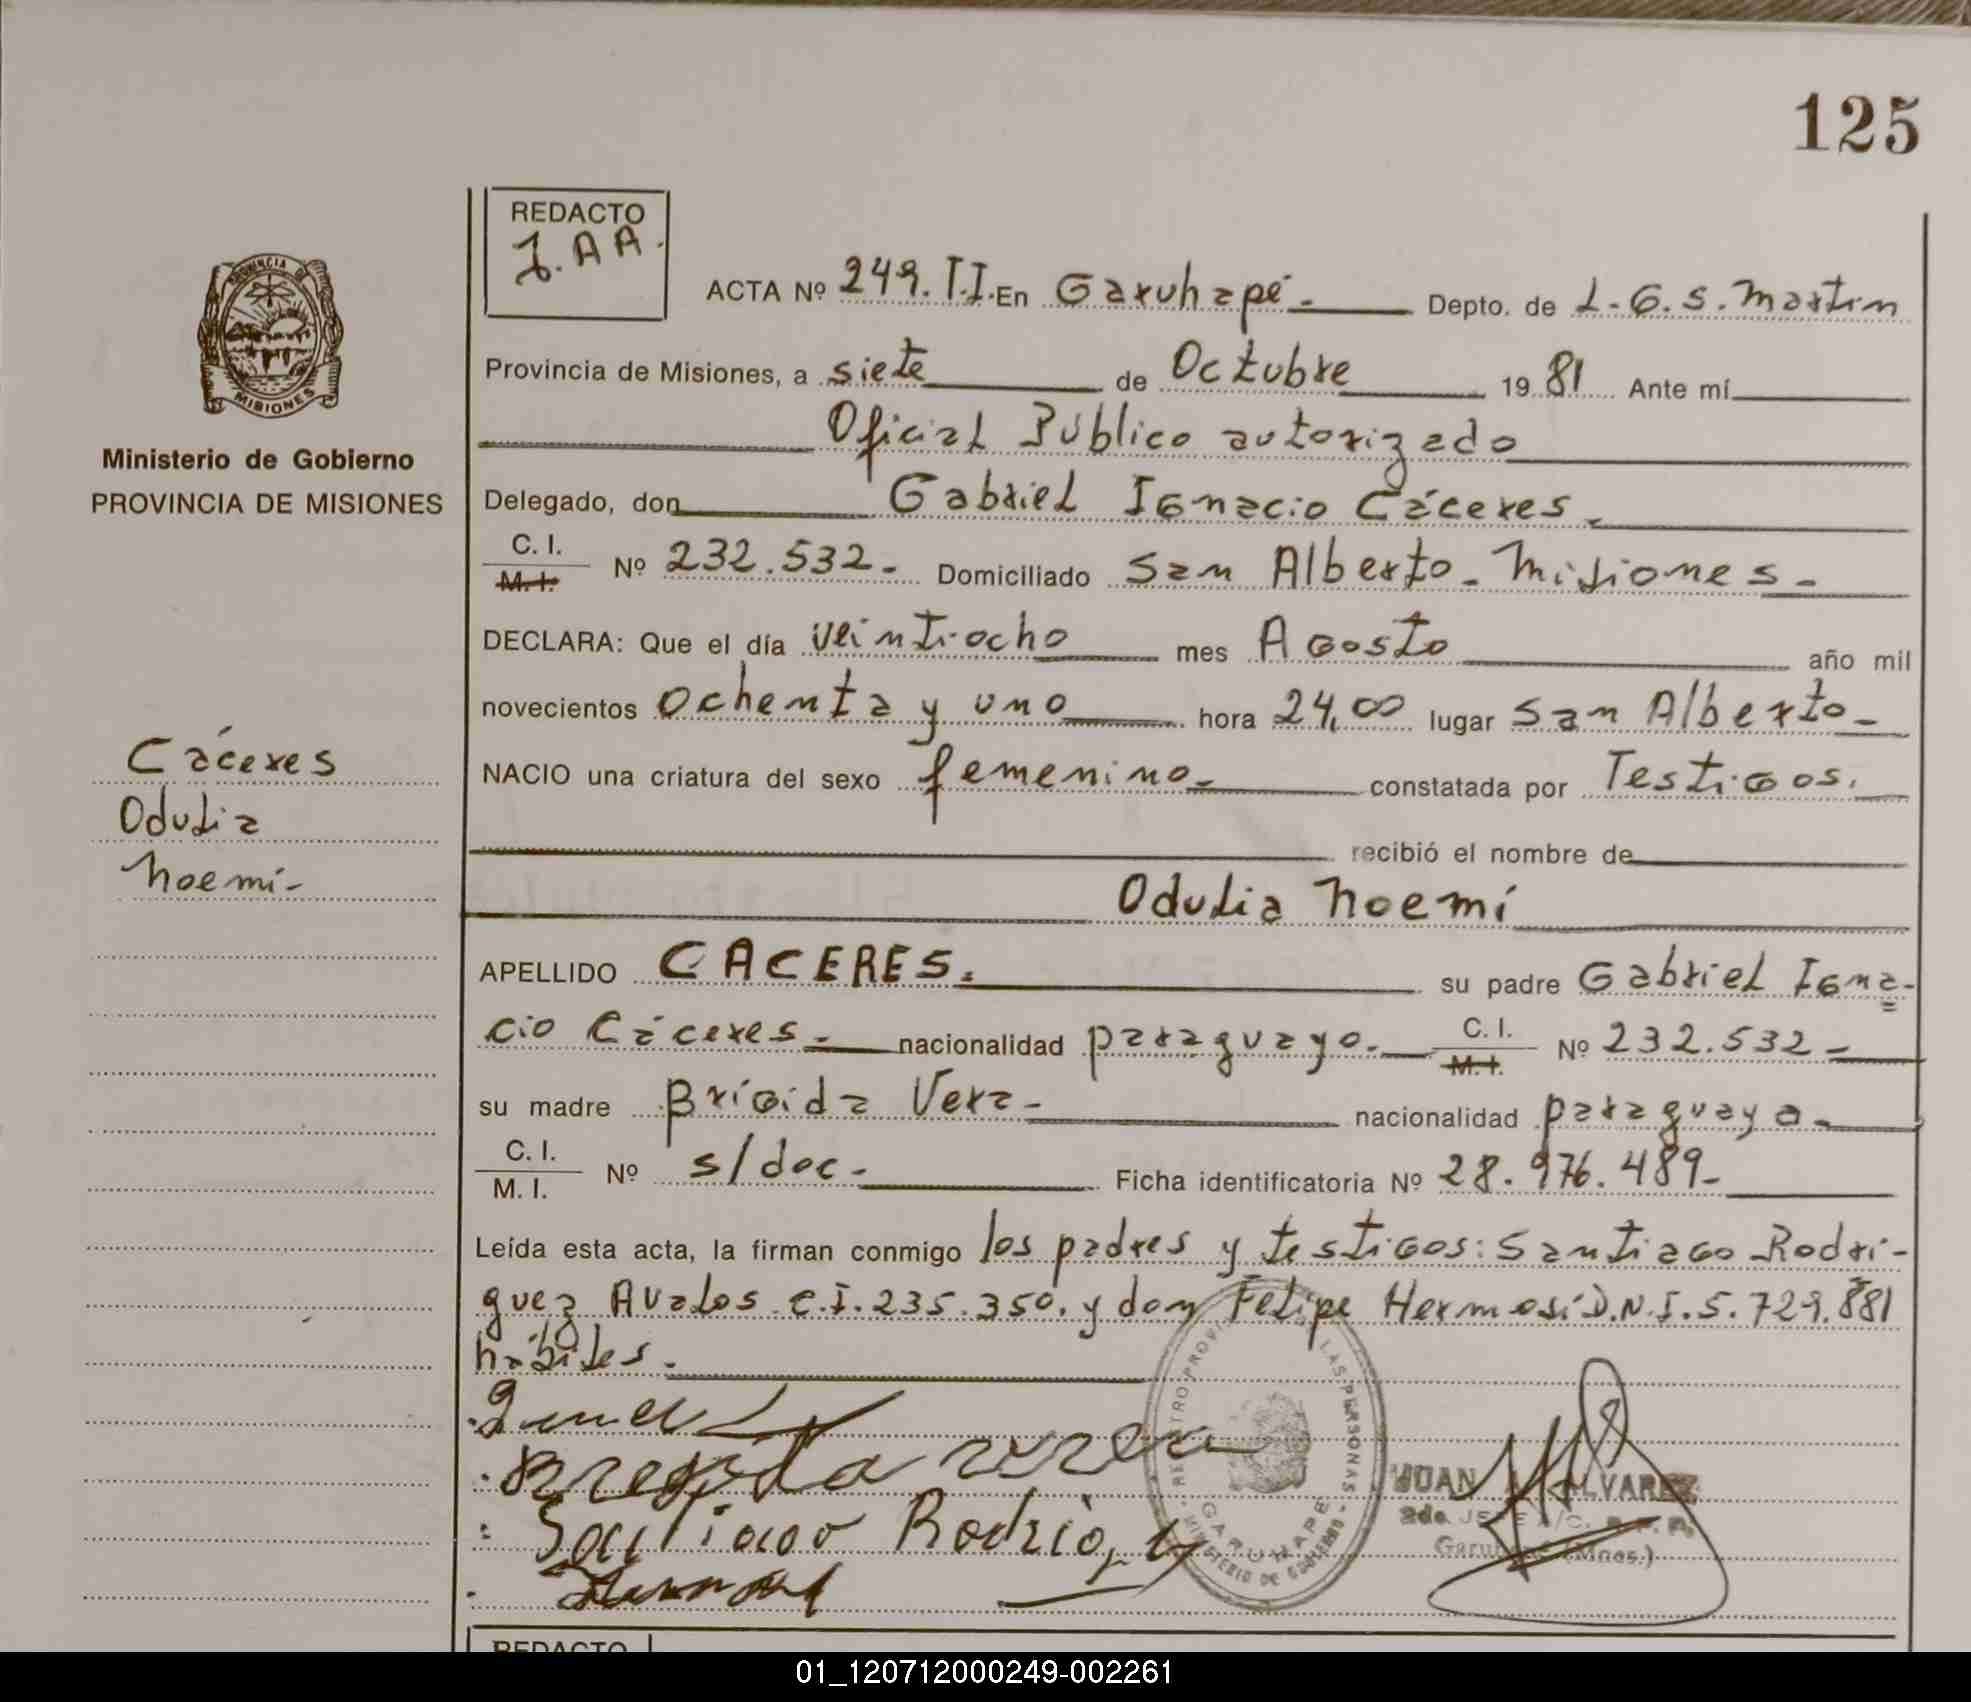 125
REDACTO
J.AA.
ACTA Nº 249.T.I. En Garuhapé.- Depto. de L.G.S.Martin
Provincia de Misiones, a siete de Octubre 19 81 Ante mí
Oficial Público autorizado
Delegado, don Gabriel Ignacio Cáceres.
C. I.
M. I. Nº 232.532.- Domiciliado San Alberto.- Misiones.-
DECLARA: Que el día veintiocho mes Agosto año mil
novecientos ochenta y uno hora 24,00 lugar San Alberto.-
NACIO una criatura del sexo femenino.- constatada por Testigos.
recibió el nombre de
Odulia Noemí
APELLIDO CACERES. su padre Gabriel Igna-
cio Cáceres.- nacionalidad paraguayo.- C. I.
M. I. Nº 232.532.-
su madre Brígida Vera.- nacionalidad paraguaya.-
C. I.
M. I. Nº s/doc.- Ficha identificatoria Nº 28.976.489-
Leída esta acta, la firman conmigo los padres y testigos: Santiago Rodrí-
guez Avalos C.I. 235.350. y don Felipe Hermosí D.N.I. 5.729.881
hábiles.
Bregida vera
Santiago Rodrig
PROVINCIA DE
MISIONES
Ministerio de Gobierno
PROVINCIA DE MISIONES
Cáceres
Odulia
Noemí-
REGISTRO PROVINCIAL DE LAS PERSONAS
GARUHAPE
MINISTERIO DE GOBIERNO
JUAN A. ALVAREZ
2do. JEFE A/C. R.P.P.
Garuhapé (Mnes.)
REDACTO
01_120712000249-002261